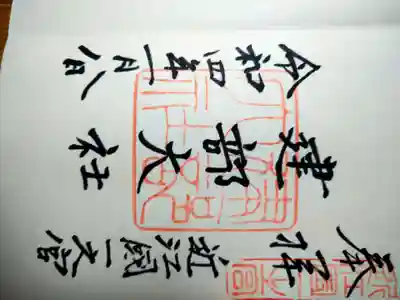 奉拝 近江国一之宮
建部大社
令和四年一月八日